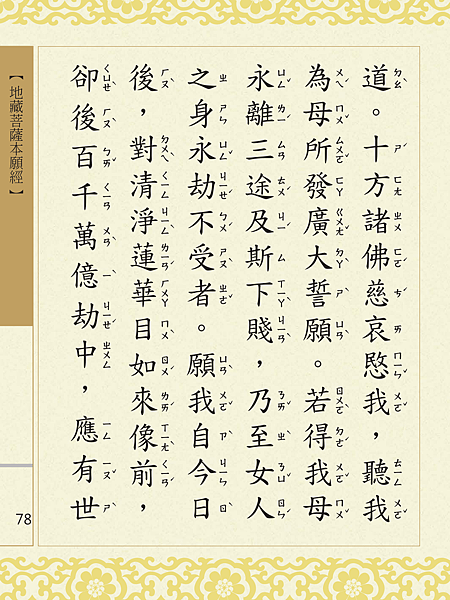 道。十方諸佛慈哀愍我，聽我
為母所發廣大誓願。若得我母
永離三途及斯下賤，乃至女人
之身永劫不受者。願我自今日
後，對清淨蓮華目如來像前，
卻後百千萬億劫中，應有世
【地藏菩薩本願經】
78